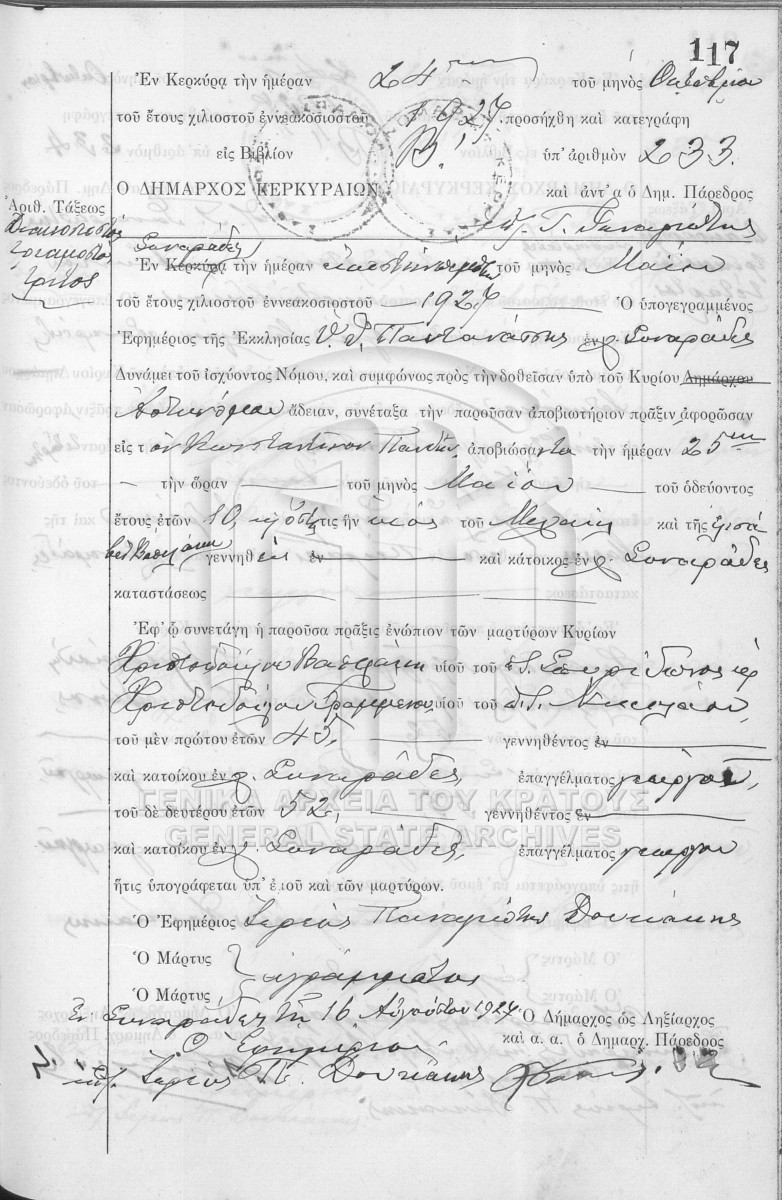 117
Ἐν Κερκύρᾳ τὴν ἡμέραν 24ην τοῦ μηνὸς Ὀκτωβρίου
τοῦ ἔτους χιλιοστοῦ ἐννεακοσιοστοῦ 1927. προσήχθη καὶ κατεγράφη
εἰς Βιβλίον Β! ὑπ' ἀριθμὸν 233.
Ο ΔΗΜΑΡΧΟΣ ΚΕΡΚΥΡΑΙΩΝ καὶ ἀντ' α ὁ Δημ. Πάρεδρος
Ἀριθ. Τάξεως
Διακοσιοστὸς
τριακοστὸς
τρίτος
Συναράδες
Ἐν Κερκύρᾳ τὴν ἡμέραν εἰκοστὴν τοῦ μηνὸς Μαΐου
τοῦ ἔτους χιλιοστοῦ ἐννεακοσιοστοῦ — 1927 — Ὁ ὑπογεγραμμένος
Ἐφημέριος τῆς Ἐκκλησίας Παντανάσσης ἐν χ. Συναράδες
Δυνάμει τοῦ ἰσχύοντος Νόμου, καὶ συμφώνως πρὸς τὴν δοθεῖσαν ὑπὸ τοῦ Κυρίου Δημάρχου
ἄδειαν, συνέταξα τὴν παροῦσαν ἀποβιωτήριον πρᾶξιν ἀφορῶσαν
εἰς τὸν Κωνσταντῖνον ἀποβιώσαντα τὴν ἡμέραν 25ην
— τὴν ὥραν — τοῦ μηνὸς Μαΐου — τοῦ ὁδεύοντος
ἔτους ἐτῶν 10, ὅστις ἦν υἱὸς τοῦ καὶ τῆς
γεννηθεὶς ἐν — καὶ κάτοικος ἐν χ. Συναράδες
καταστάσεως — — —
Ἐφ' ᾧ συνετάγη ἡ παροῦσα πρᾶξις ἐνώπιον τῶν μαρτύρων Κυρίων
Χριστοδούλου υἱοῦ τοῦ Σπυρίδωνος
Χριστοδούλου Γραμμένου υἱοῦ τοῦ Νικολάου,
τοῦ μὲν πρώτου ἐτῶν 45, — γεννηθέντος ἐν —
καὶ κατοίκου ἐν χ. Συναράδες, ἐπαγγέλματος γεωργοῦ,
τοῦ δὲ δευτέρου ἐτῶν 52, — γεννηθέντος ἐν —
καὶ κατοίκου ἐν χ. Συναράδες, ἐπαγγέλματος γεωργοῦ
ἥτις ὑπογράφεται ὑπ' ἐμοῦ καὶ τῶν μαρτύρων.
Ὁ Ἐφημέριος Ἱερεὺς Παναγιώτης Δουκάκης
Ὁ Μάρτυς
ἀγράμματοι
Ὁ Μάρτυς
Ἐν Συναράδες τῇ 16 Αὐγούστου 1927 Ὁ Δήμαρχος ὡς Ληξίαρχος
Ὁ Ἐφημέριος καὶ α. α. ὁ Δημαρχ. Πάρεδρος
Ἱερεὺς Π. Δουκάκης
ΓΕΝΙΚΑ ΑΡΧΕΙΑ ΤΟΥ ΚΡΑΤΟΥΣ
GENERAL STATE ARCHIVES